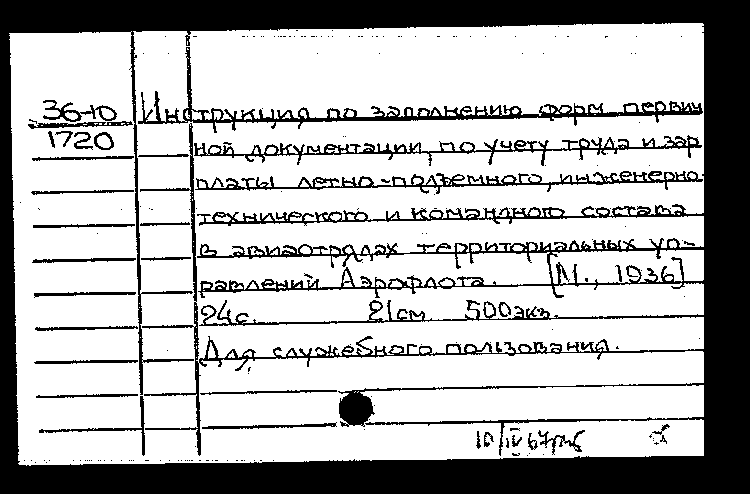 36-10 Инструкция по заполнению форм первич
1720 ной документации, по учету труда и зар
платы летно-подъемного, инженерно-
технического и командного состава
в авиаотрядах территориальных уп-
равлений Аэрофлота. [М., 1936]
24с. 21см 500экз.
Для служебного пользования.
10/IV 67